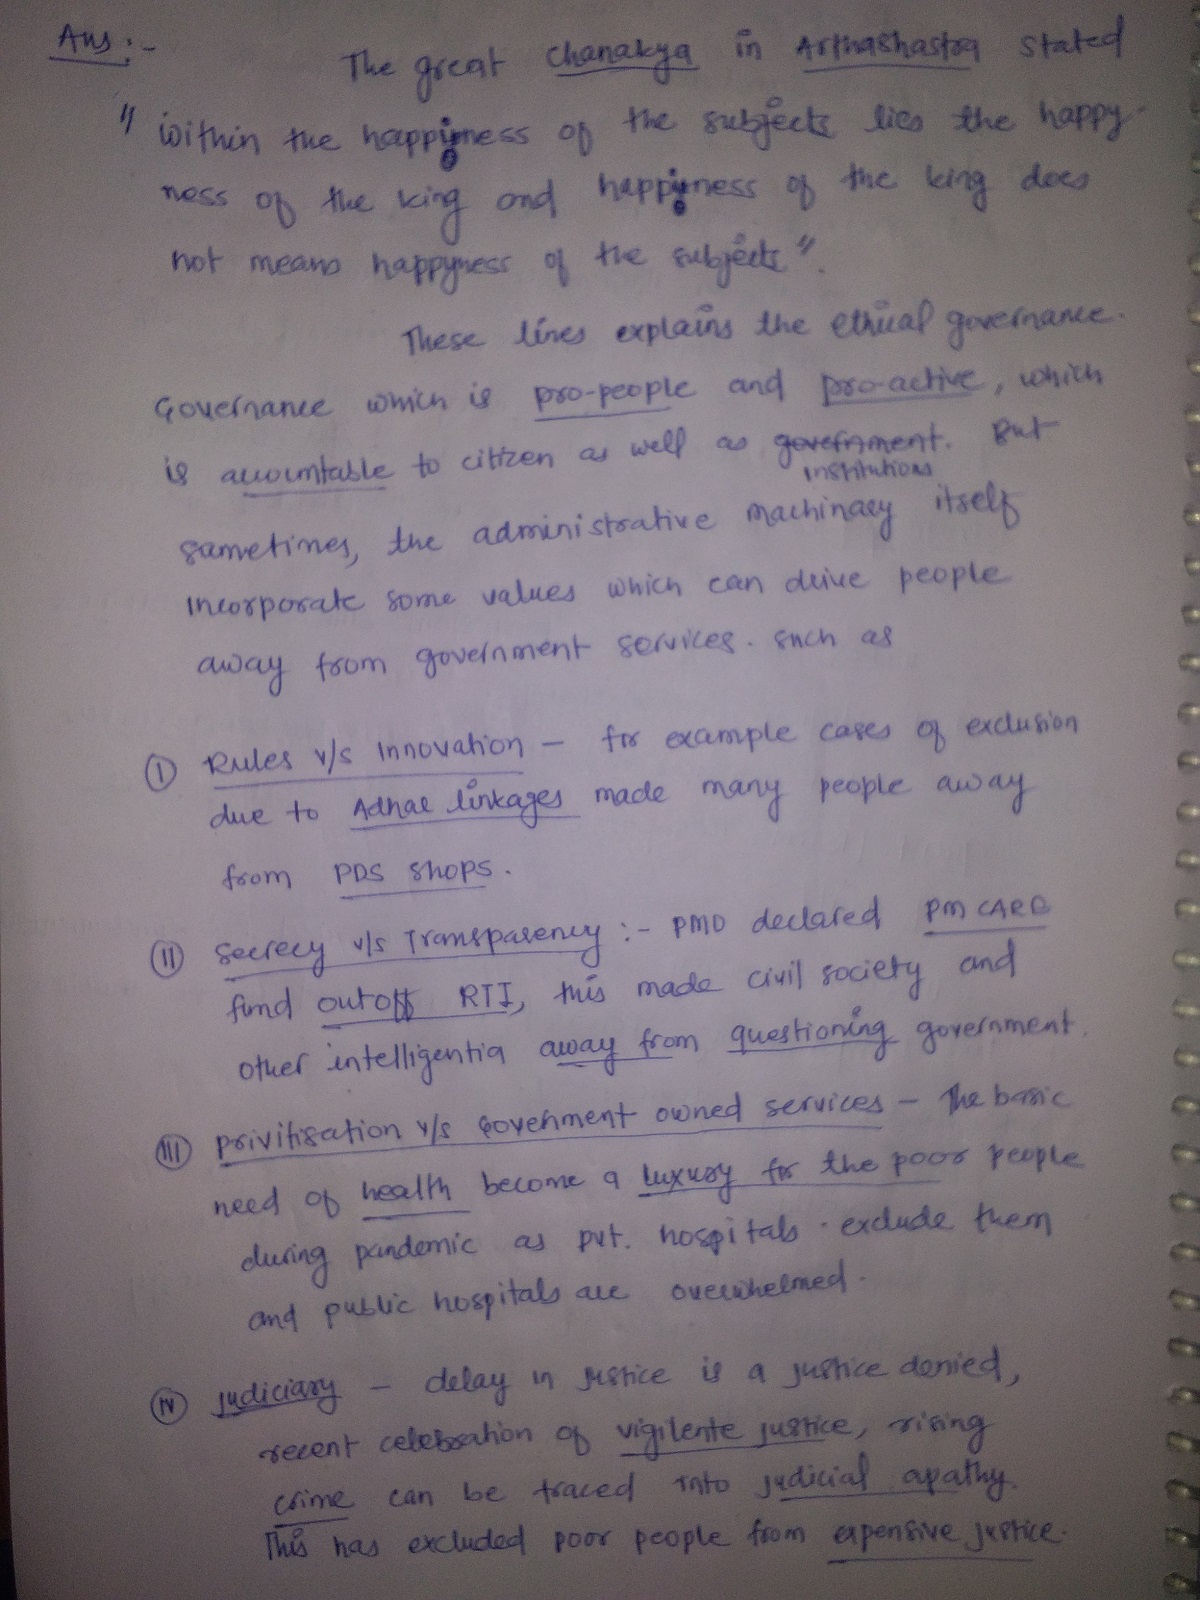 Ans :-
The great Chanakya in Arthashastra stated
" Within the happiness of the subjects lies the happy-
ness of the king and happiness of the king does
not means happyness of the subjects ".
These lines explains the ethical governance.
Governance which is pro-people and pro-active, which
is accountable to citizen as well as government. But
institutions
sametimes, the administrative machinary itself
incorporate some values which can drive people
away from government services. such as
(I) Rules v/s Innovation – for example cases of exclusion
due to Adhar linkages made many people away
from PDS shops.
(II) Secrecy v/s Transparency :- PMO declared PM CARE
fund outoff RTI, this made civil society and
other intelligentia away from questioning government.
(III) Privitisation v/s Government owned services – The basic
need of health become a luxury for the poor people
during pandemic as pvt. hospitals exclude them
and public hospitals are overwhelmed.
(IV) Judiciary – delay in justice is a justice denied,
recent celebration of vigilente justice, rising
crime can be traced into judicial apathy.
This has excluded poor people from expensive justice.